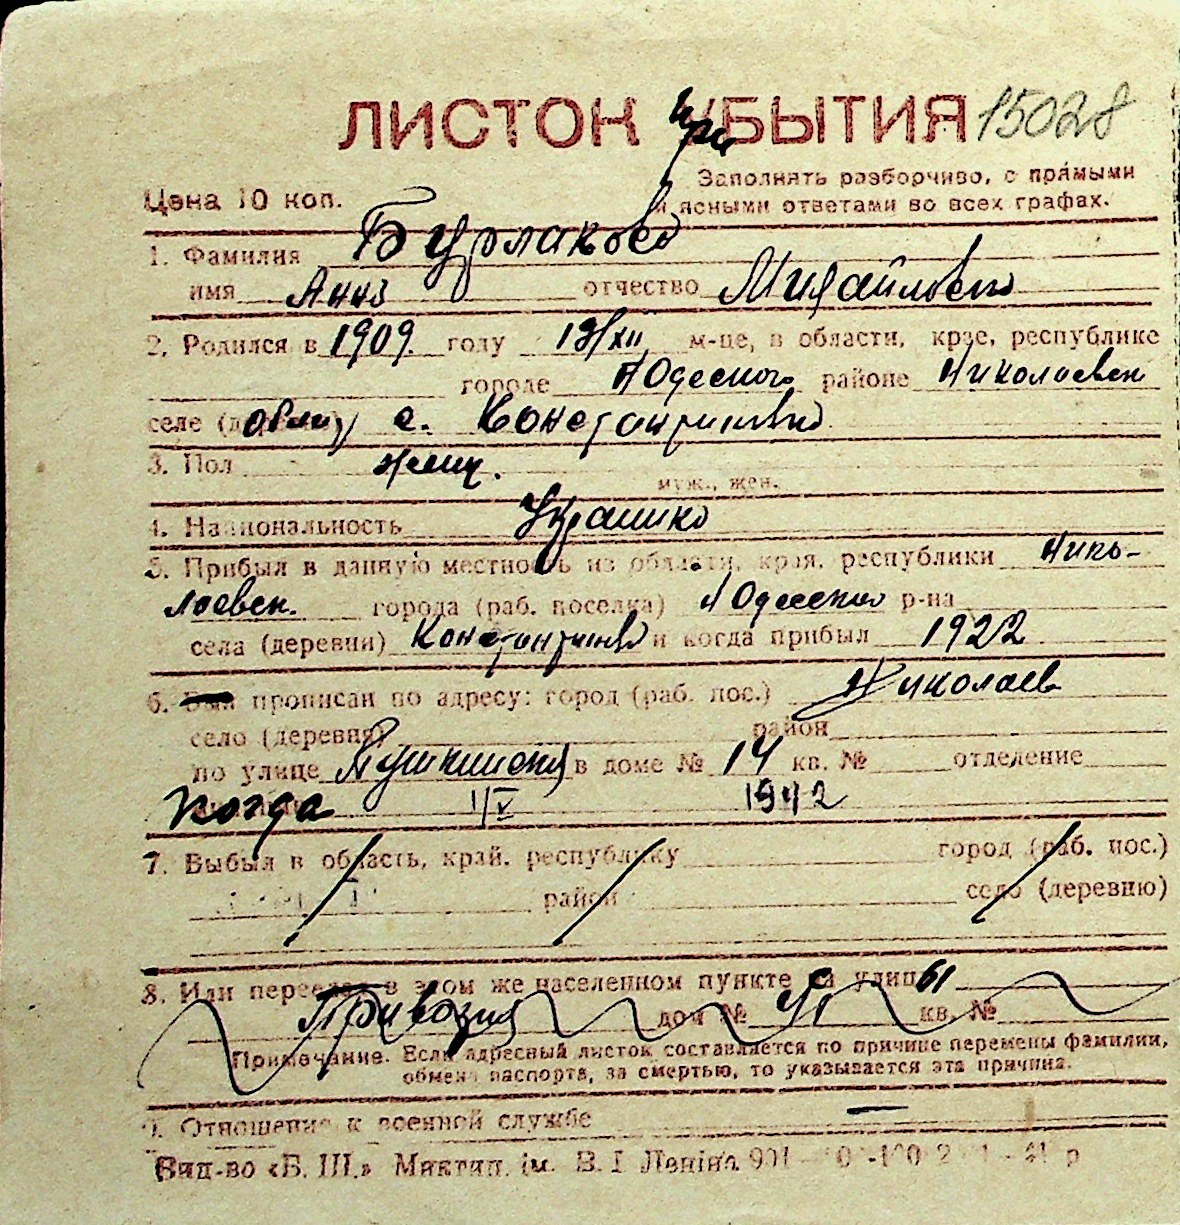 ЛИСТОК при БЫТИЯ 15028
Цена 10 коп.
Заполнять разборчиво, с прямыми
и ясными ответами во всех графах.
1. Фамилия Бурлакова
имя Анна отчество Михайловна
2. Родился в 1909 году 13/XII м-це, в области, крае, республике
городе Н Одесског районе Николаевск
селе области с. Константиновка
3. Пол женщ.
муж., жен.
4. Национальность Украинка
5. Прибыл в данную местность из области, края, республики Нико-
лаевск. города (раб. поселка) Н Одесского р-на
села (деревни) Константиновка и когда прибыл 1922
6. прописан по адресу: город (раб. пос.) Николаев
село (деревня) район
по улице Пушкинская в доме № 14 кв. № отделение
Когда 1/V 1942
7. Выбыл в область, край, республику город (раб. пос.)
район село (деревню)
8. Или переехал в этом же населенном пункте с улицы
дом № кв. №
Примечание. Если адресный листок составляется по причине перемены фамилии,
обмена паспорта, за смертью, то указывается эта причина.
9. Отношение к военной службе —
Вид-во «Б. Ш.» Миктип. ім. В. І. Леніна